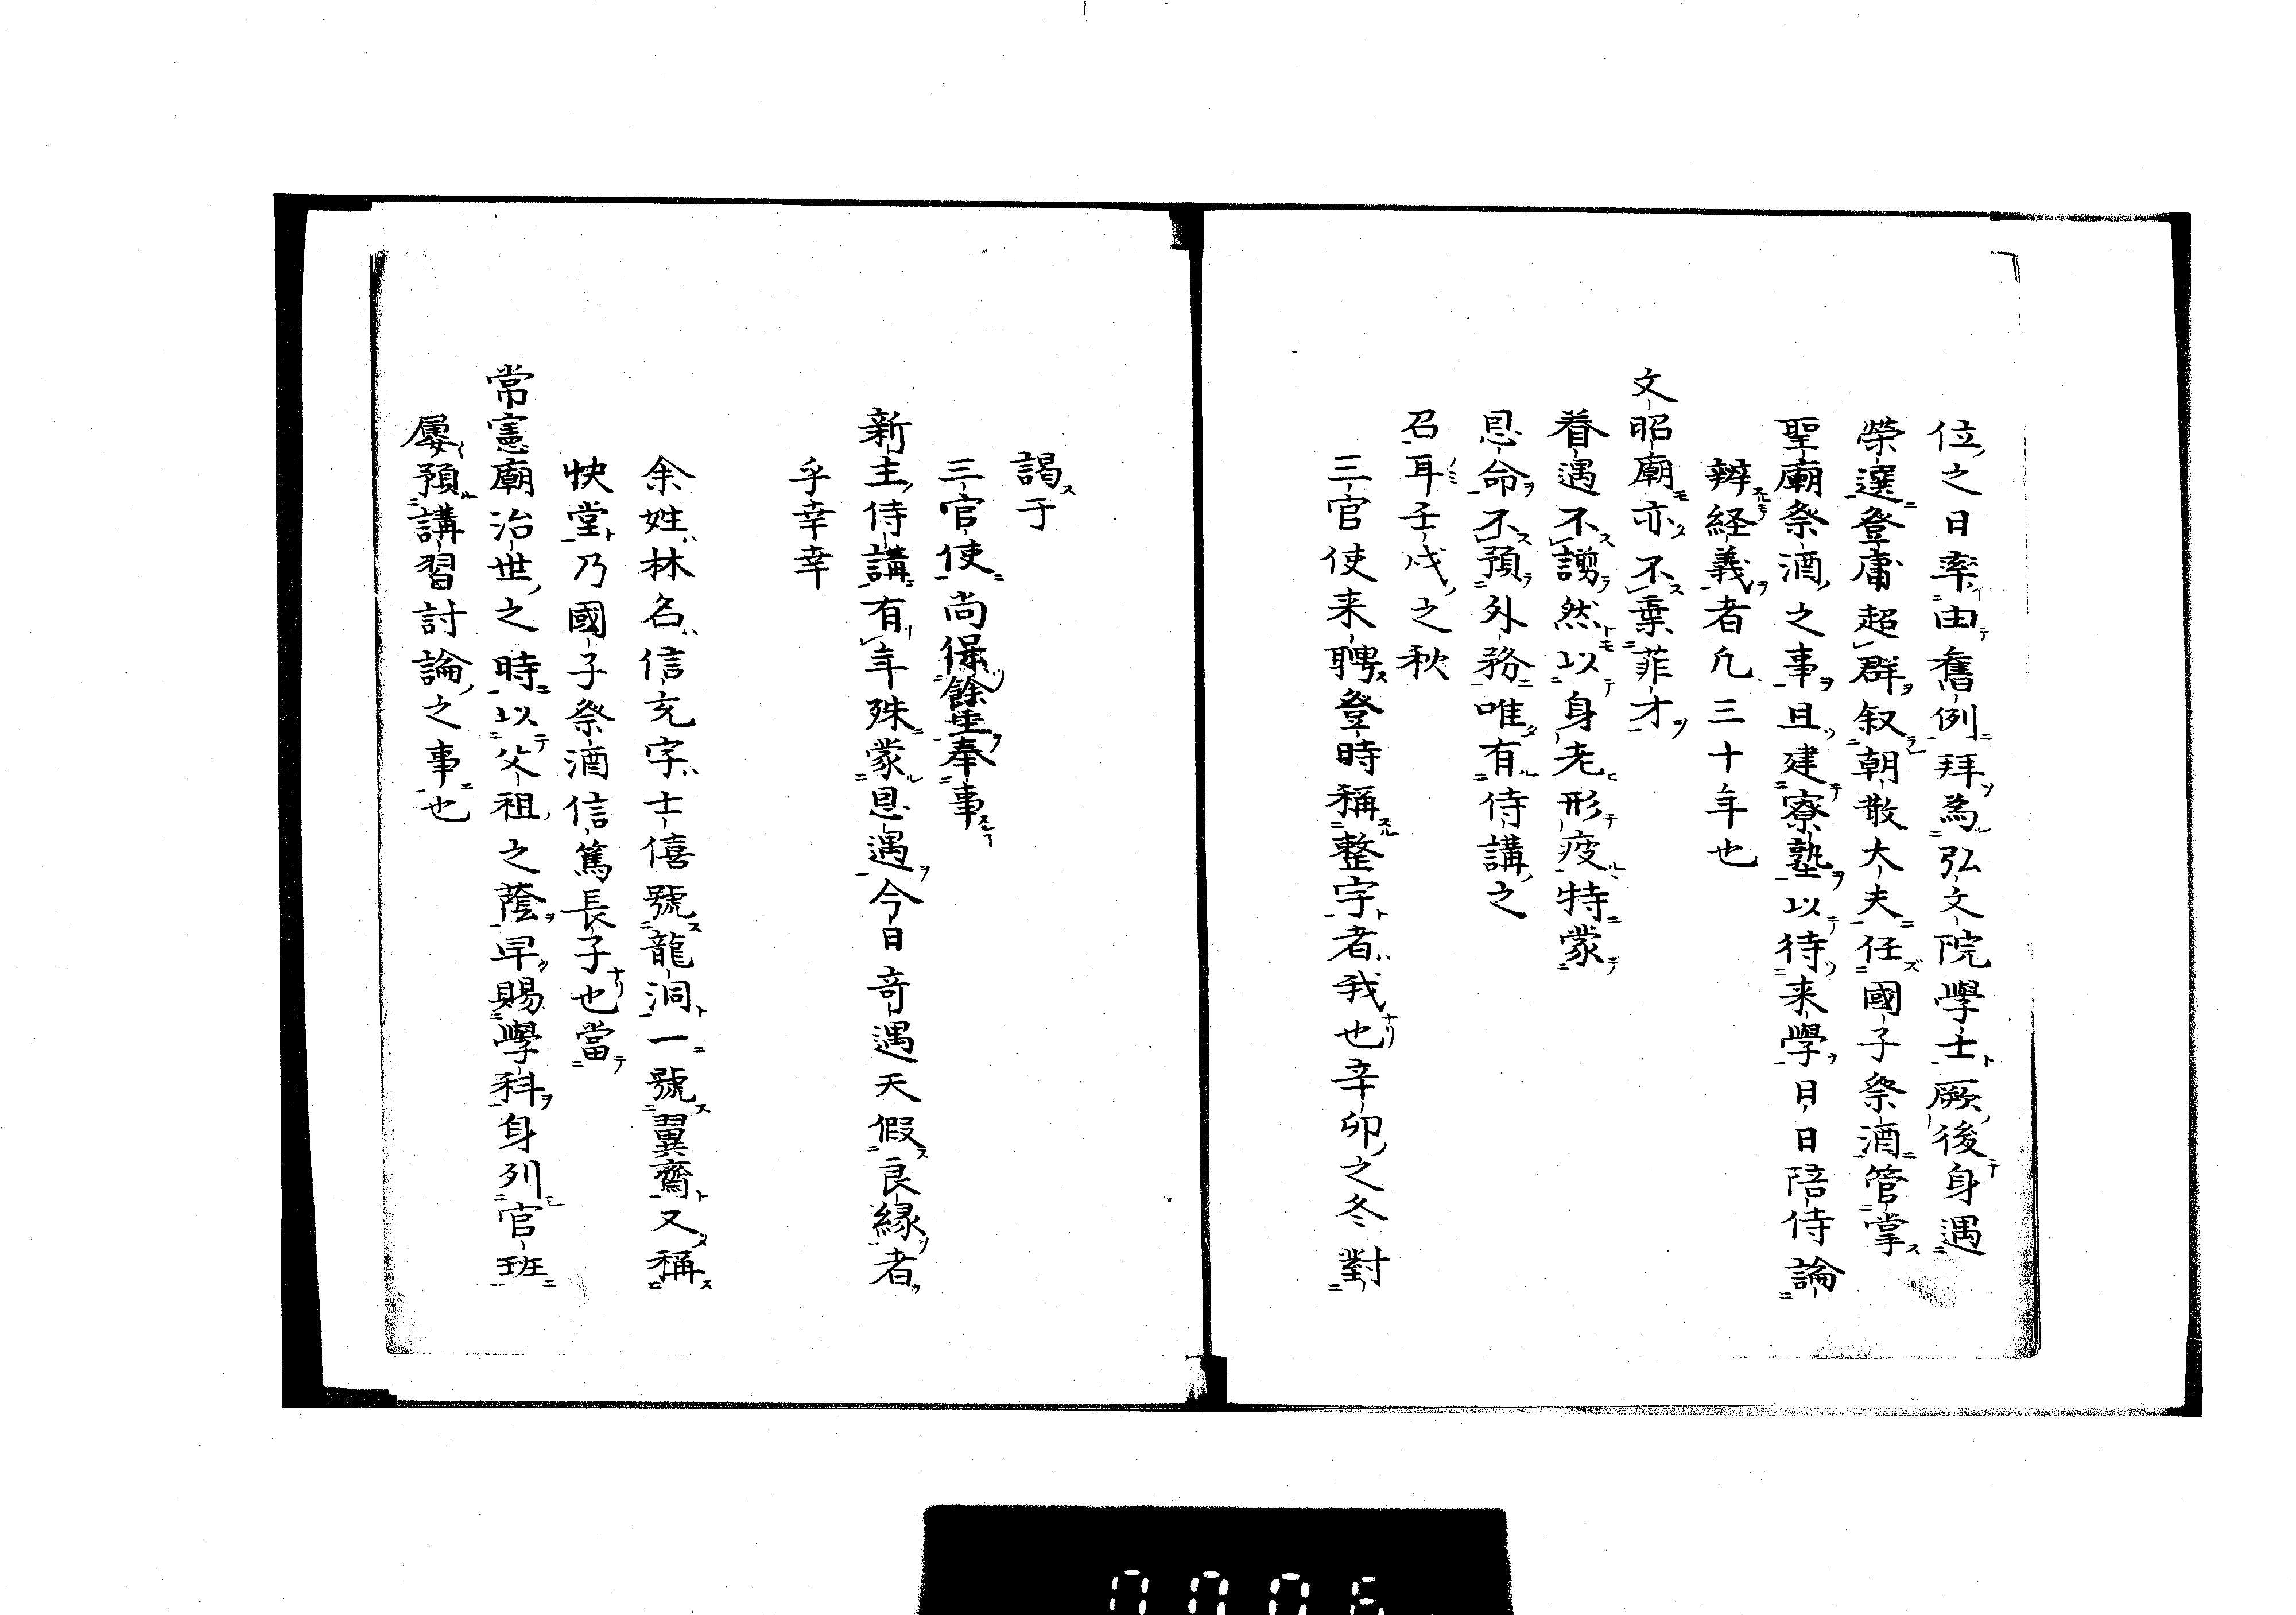 位之日率由舊例拜為弘文院學士厥後身遇
榮選登庸超群叙朝散大夫任國子祭酒管掌
聖廟祭酒之事且建寮塾以待来學日日陪侍論
辨経義者凡三十年也
文昭廟亦不棄菲才
眷遇不譾然以身老形疲特蒙
恩命不預外務唯有侍講之
召耳壬戌之秋
三官使来聘登時稱整宇者我也辛卯之冬對
謁于
三官使尚保餘生奉事
新主侍講有年殊蒙恩遇今日奇遇天假良縁者
乎幸幸
余姓林名信充字士僖號龍洞一號翼齋又稱
快堂乃國子祭酒信篤長子也當
常憲廟治世之時以父祖之蔭早賜學科身列官班
屡預講習討論之事也